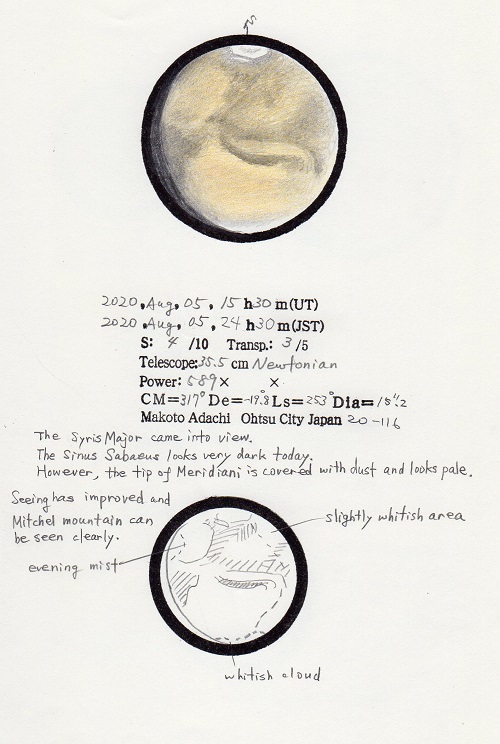 2020, Aug, 05, 15 h30 m(UT)
2020, Aug, 05, 24 h30 m(JST)
S: 4 /10 Transp.: 3 /5
Telescope: 35.5 cm Newtonian
Power: 589× ×
CM=317° De=-19.8° Ls=253° Dia=15".2
Makoto Adachi Ohtsu City Japan 20-116
The Syris Major came into view.
The Sinus Sabaeus looks very dark today.
However, the tip of Meridiani is covered with dust and looks pale.
Seeing has improved and
Mitchel mountain can
be seen clearly.
slightly whitish area
evening mist
whitish cloud